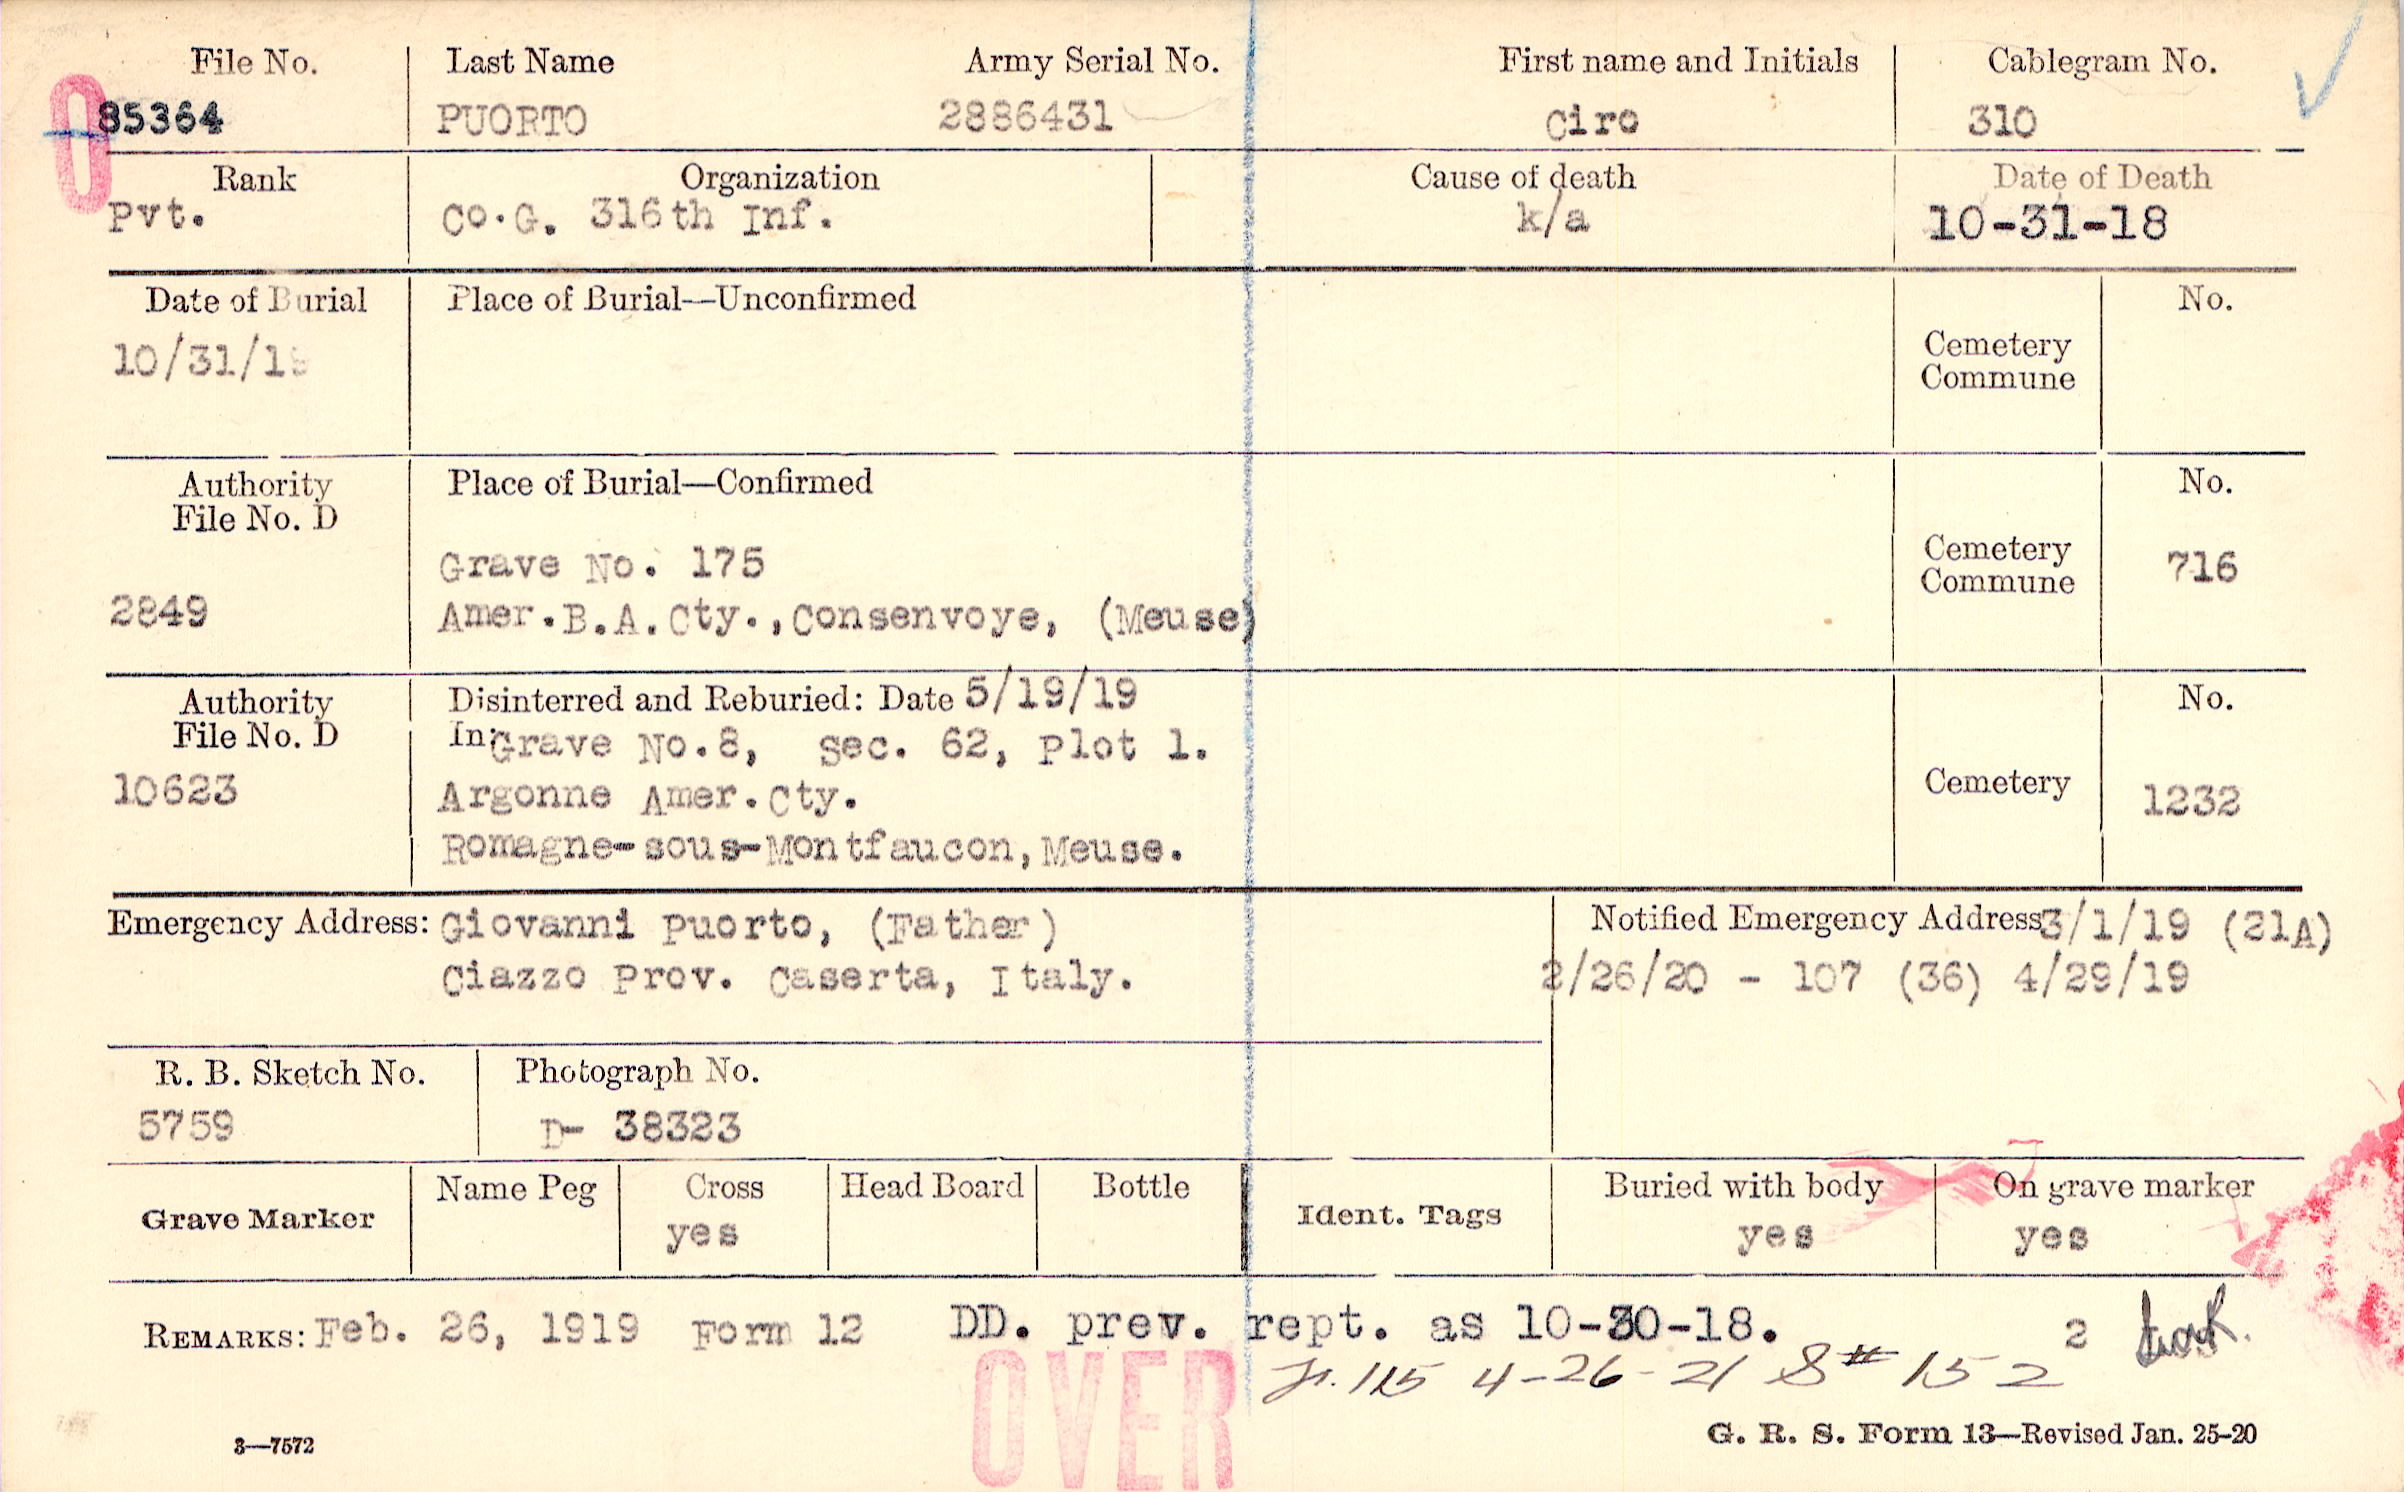 File No. Last Name Army Serial No. First name and Initials Cablegram No.
85364 PUORTO 2886431 Ciro 310
Rank Organization Cause of death Date of Death
Pvt. Co.G. 316th Inf. k/a 10-31-18
Date of Burial Place of Burial—Unconfirmed No.
10/31/18
Cemetery
Commune
Authority Place of Burial—Confirmed No.
File No. D
Grave No. 175 Cemetery
Commune 716
2849 Amer.B.A.Cty.,Consenvoye, (Meuse)
Authority Disinterred and Reburied: Date 5/19/19 No.
File No. D In: Grave No.8, Sec. 62, Plot 1.
10623 Argonne Amer.Cty. Cemetery 1232
Romagne-sous-Montfaucon,Meuse.
Emergency Address: Giovanni Puorto, (Father) Notified Emergency Address 3/1/19 (21A)
Ciazzo Prov. Caserta, Italy. 2/26/20 - 107 (36) 4/29/19
R. B. Sketch No. Photograph No.
5759 D- 38323
Grave Marker Name Peg Cross Head Board Bottle Ident. Tags Buried with body On grave marker
yes yes yes
REMARKS: Feb. 26, 1919 Form 12 DD. prev. rept. as 10-30-18. 2
115 4-26-21 S# 152
OVER
3—7572 G. R. S. Form 13—Revised Jan. 25-20